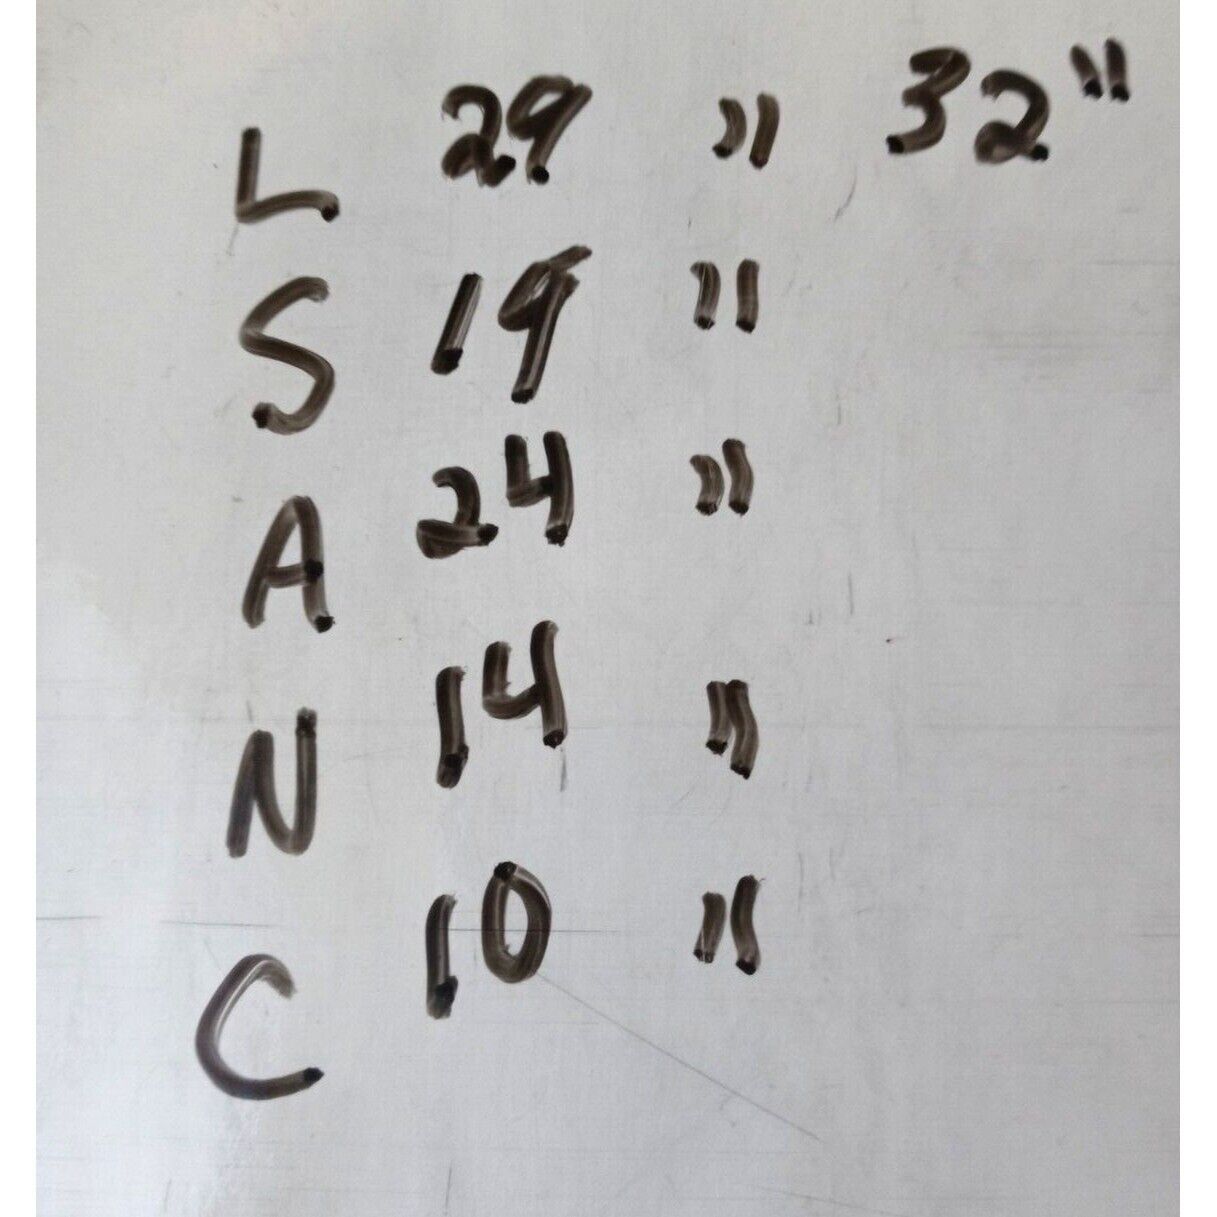 L 29 " 32"
S 19 "
A 24 "
N 14 "
C 10 "